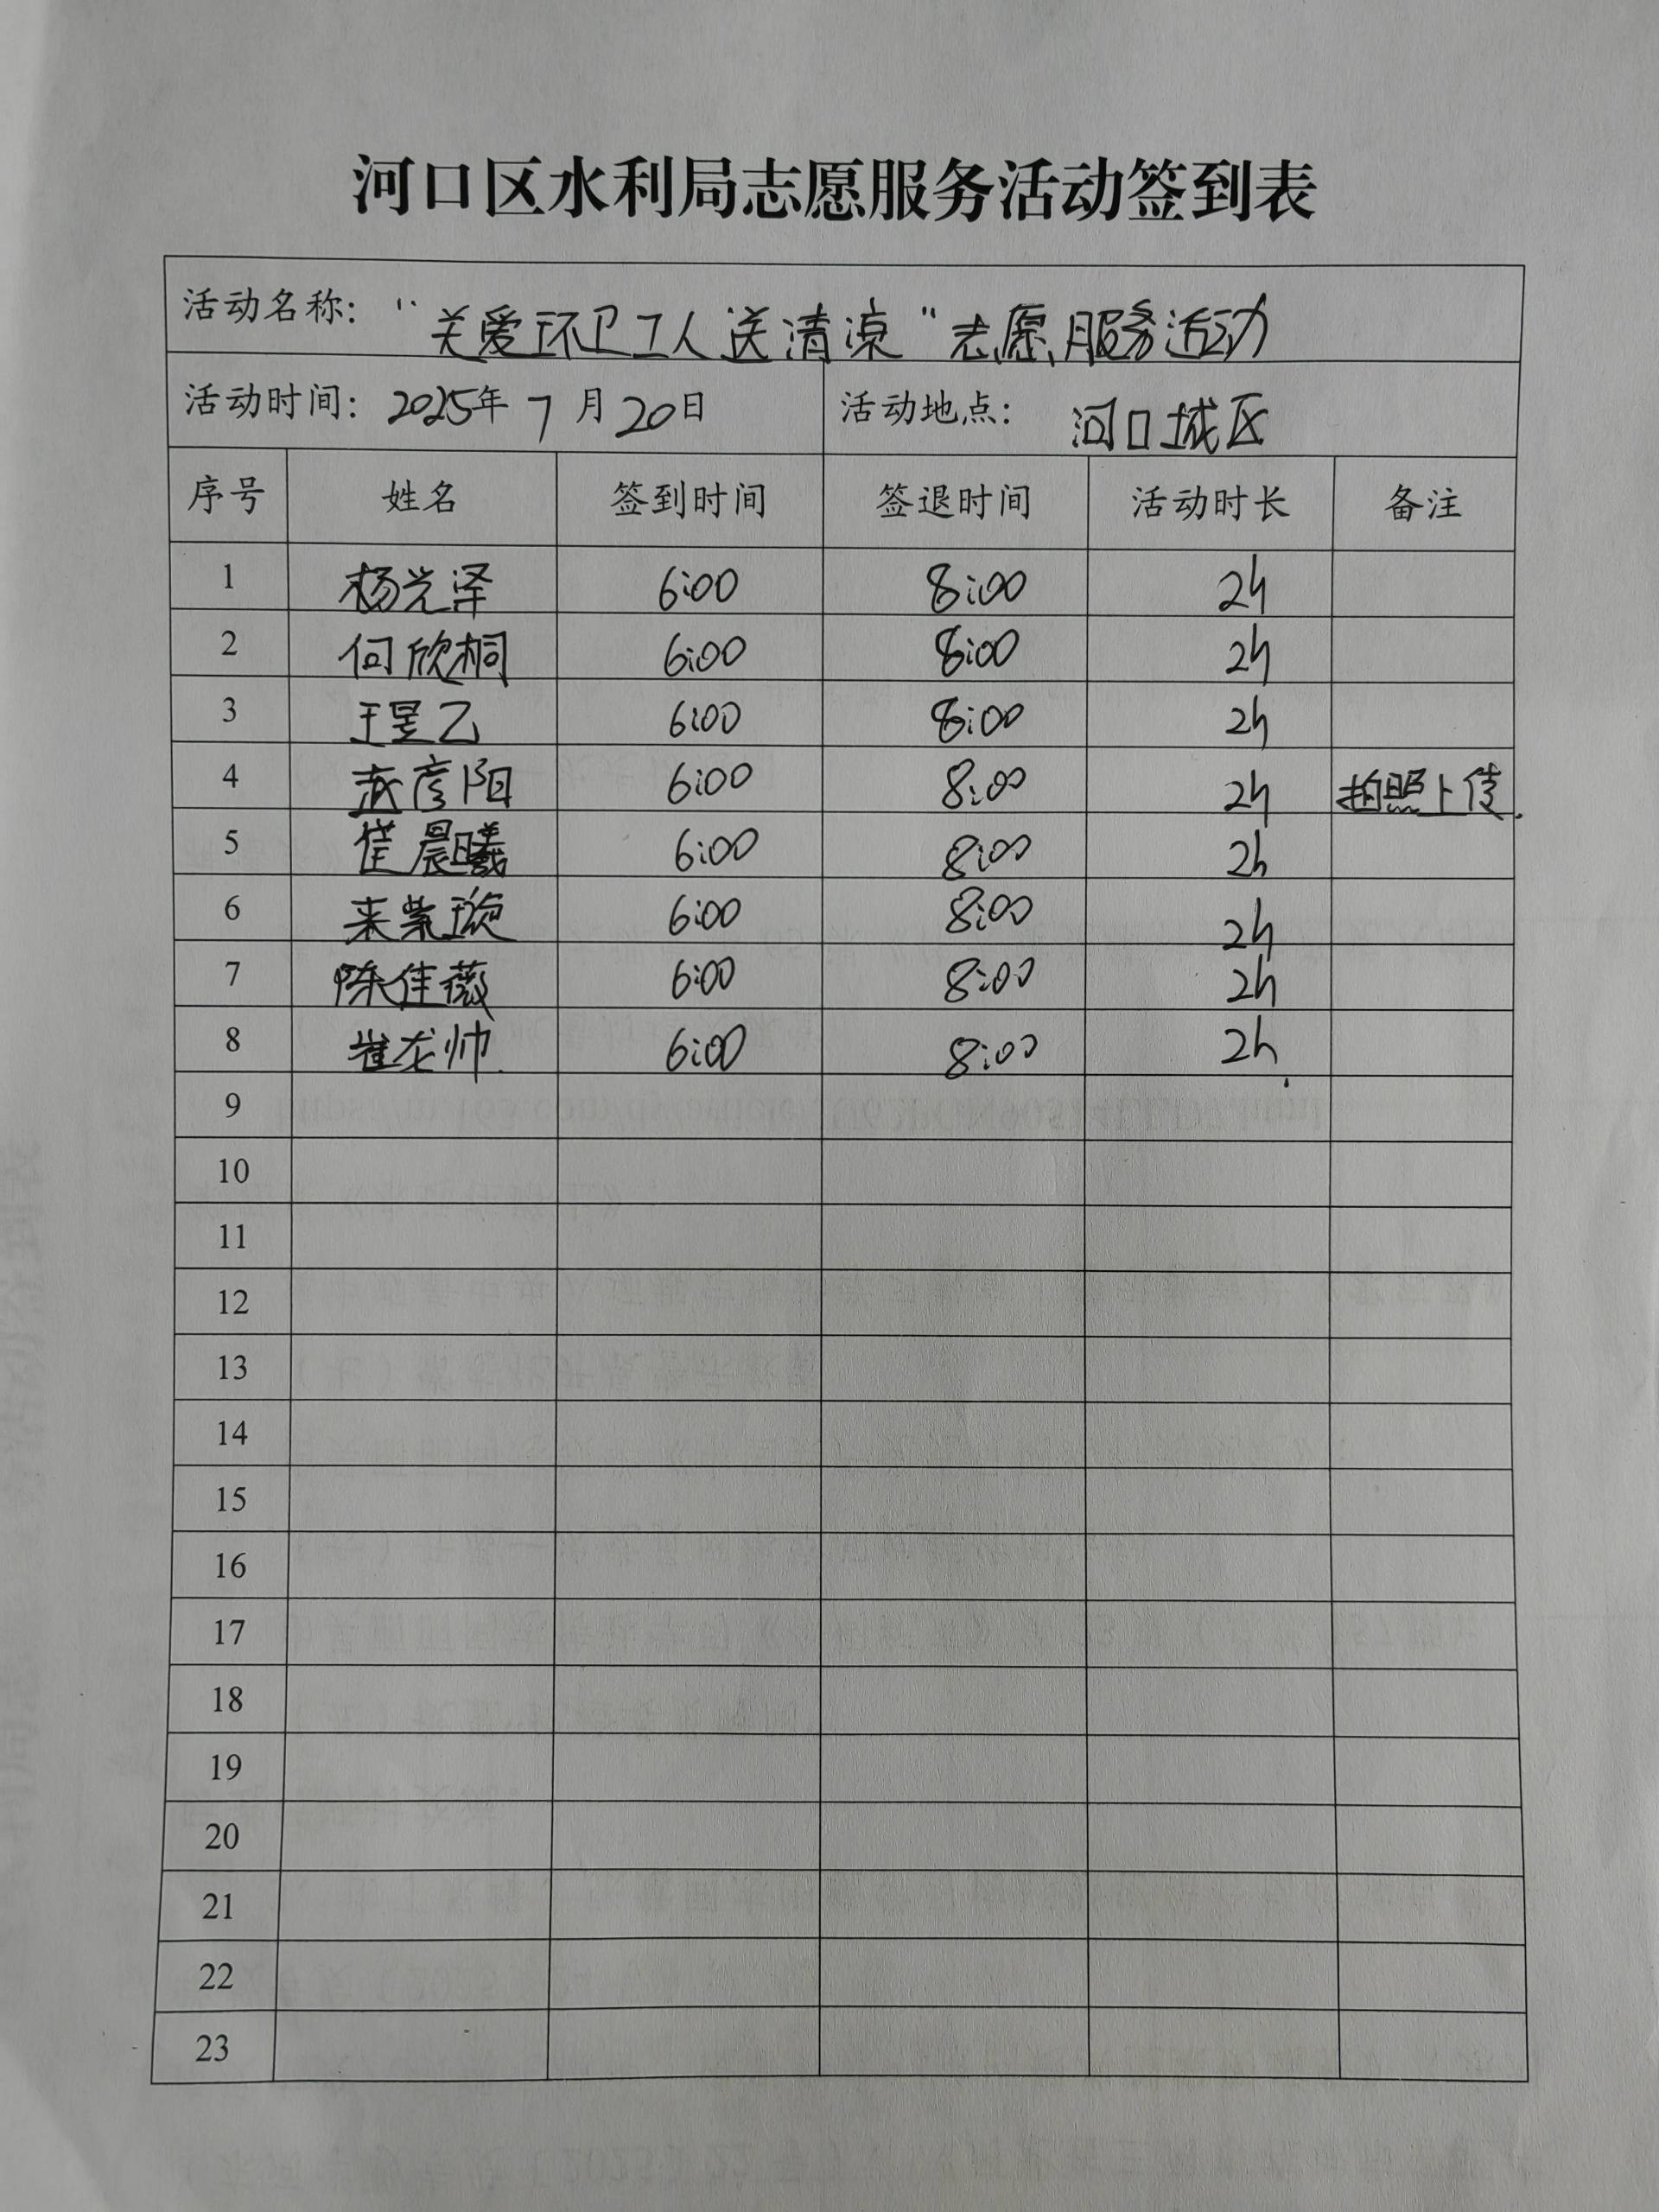 河口区水利局志愿服务活动签到表
活动名称： “关爱环卫工人送清凉”志愿服务活动
活动时间： 2025年 7 月 20日 活动地点： 河口城区
序号 姓名 签到时间 签退时间 活动时长 备注
1 杨光泽 6:00 8:00 2h
2 何欣桐 6:00 8:00 2h
3 王昱乙 6:00 8:00 2h
4 彦阳 6:00 8:00 2h 拍照上传.
5 崔晨曦 6:00 8:00 2h
6 来紫璇 6:00 8:00 2h
7 陈佳薇 6:00 8:00 2h
8 崔龙帅. 6:00 8:00 2h.
9
10
11
12
13
14
15
16
17
18
19
20
21
22
23